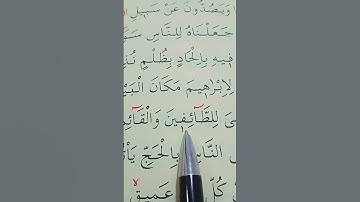 وَيَصُدُّونَ عَنْ سَبِيلِ
جَعَلْنَاهُ لِلنَّاسِ
فِيهِ بِاِلْحَادٍ بِظُلْمٍ
لِاِبْرٰهِيمَ مَكَانَ الْبَيْ
لِلطَّٓائِفِينَ وَالْقَٓائِمِ
النَّاسِ بِالْحَجِّ يَأْتُ
كُلِّ عَمِيقٍ